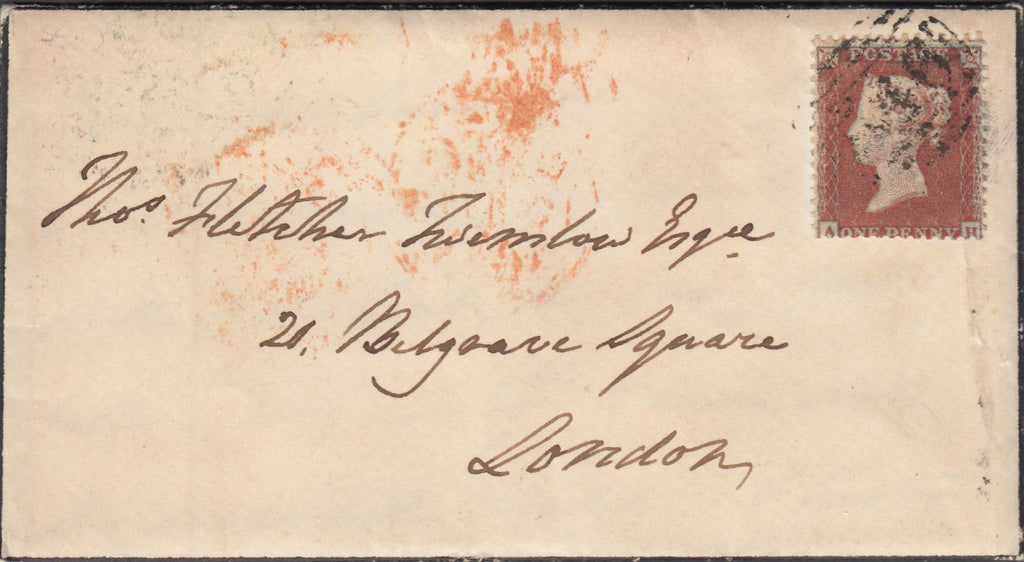 POSTAGE
A ONE PENNY H
Thos Fletcher Twemlow Esqre
21, Belgrave Square
London